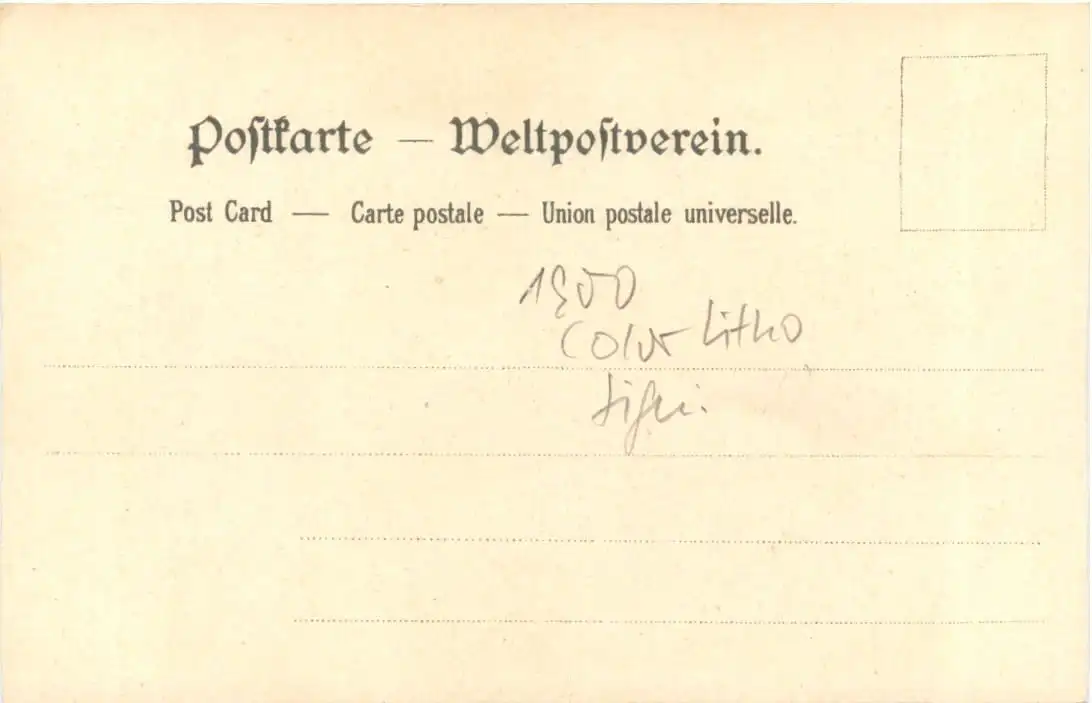 Poſtkarte — Weltpoſtverein.
Post Card — Carte postale — Union postale universelle.
1900
Color Litho